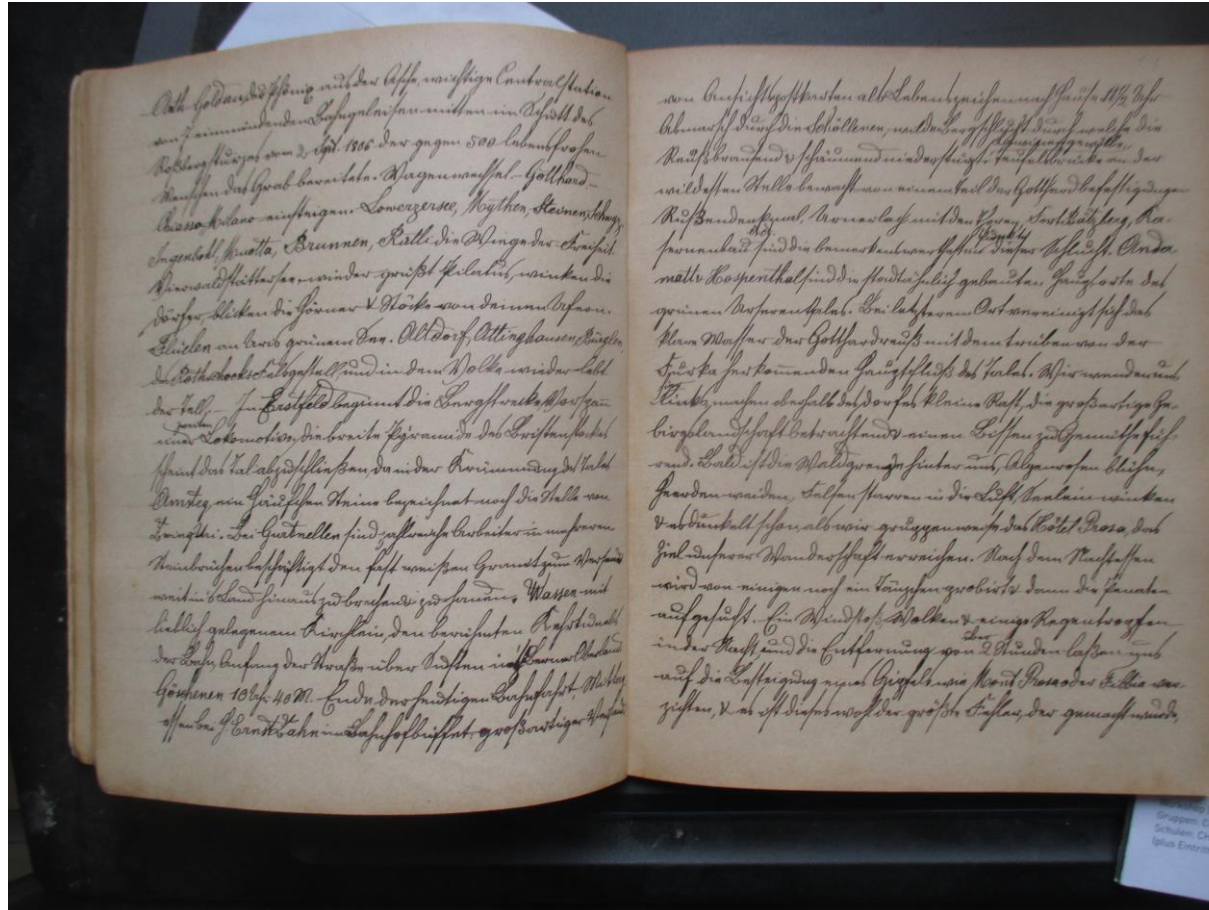 Arth-Goldau, das Phönix aus der Asche, wichtige Centralstation
von 7 einmündenden Bahngeleisen mitten im Schutt des
Roßbergsturzes vom 2. Spt. 1806 der gegen 500 lebensfrohen
Menschen das Grab bereitete. Wagenwechsel. – Gotthard –
Chiasso-Milano einsteigen. Lowerzersee, Mythen, Steinen, Schwyz,
Ingenbohl, Muotta, Brunnen, Rütli die Wiege der Freiheit.
Vierwaldstättersee – wieder grüßt Pilatus, winken die
Dörfer, blicken die Hörner & Stöcke von deinen Ufern.
Flüelen an Uris grünem See. Altdorf, Attinghausen, Bürglen,
des Rothstocks Felsgestell, und in dem Volke wieder lebt
der Tell. – In Erstfeld beginnt die Bergstrecke, Vorspann
einer zweiten Lokomotive, die breite Pyramide des Bristenstockes
scheint das Tal abzuschließen, da in der Krümmung des Tales
Amsteg, ein Häufchen Steine bezeichnet noch die Stelle von
Zwinguri. Bei Gurtnellen sind zahlreiche Arbeiter in mehreren
Steinbrüchen beschäftigt den fast weißen Granit zum Versand
weit in's Land hinaus zu brechen & zu hauen. Wassen mit
lieblich gelegenem Kirchlein, den berühmten Kehrtunels
der Bahn, Anfang der Straße über Susten in's Berner Oberland
Göschenen 10 Uhr 40 M. Ende der heutigen Bahnfahrt. Mittag-
essen bei Zahn im Bahnhofbüffet, großartiger Versand
von Ansichtspostkarten als Lebenszeichen nach Hause. 11½ Uhr
Abmarsch durch die Schöllenen, wilde Bergschlucht durch welche die
Reuß brausend & schäumend niederstürzt. Teufelsbrücke an der
wildesten Stelle bewacht von einem Teil der Gotthardbefestigungen
Rußendenkmal, Urnerloch mit den Thoren, Fort Bätzberg, Ka-
sernenbau etc. sind die bemerkenswerthesten Punkte dieser Schlucht. Ander-
matt & Hospenthal sind die stadtähnlich gebauten Hauptorte des
grünen Urserenthales. Bei letzterem Ort vereinigt sich das
klare Wasser der Gotthardreuß mit dem trüben von der
Furka herkommenden Hauptfluß des Tales. Wir wenden uns
links, machen oberhalb des Dorfes kleine Rast, die großartige Ge-
birgslandschaft betrachtend & einen Bissen zu Gemüthe füh-
rend. Bald ist die Waldgrenze hinter uns, Alpenrosen blühn,
Heerden weiden, Felsen starren in die Luft, Seelein winken
& es dunkelt schon als wir gruppenweise das Hôtel Prosa, das
Ziel unserer Wanderschaft erreichen. Nach dem Nachtessen
wird von einigen noch ein Tänzchen probirt & dann die Penaten
aufgesucht. Ein Windstoß, Wolken & einige Regentropfen
in der Nacht und die Entfernung von 2 Stunden laßen uns
auf die Besteigung eines Gipfels wie Mont Prosa oder Fibbia ver-
zichten, & es ist dieses wohl der größte Fehler, der gemacht wurde,
Gruppen: C
Schulen: CH
(plus Eintritt